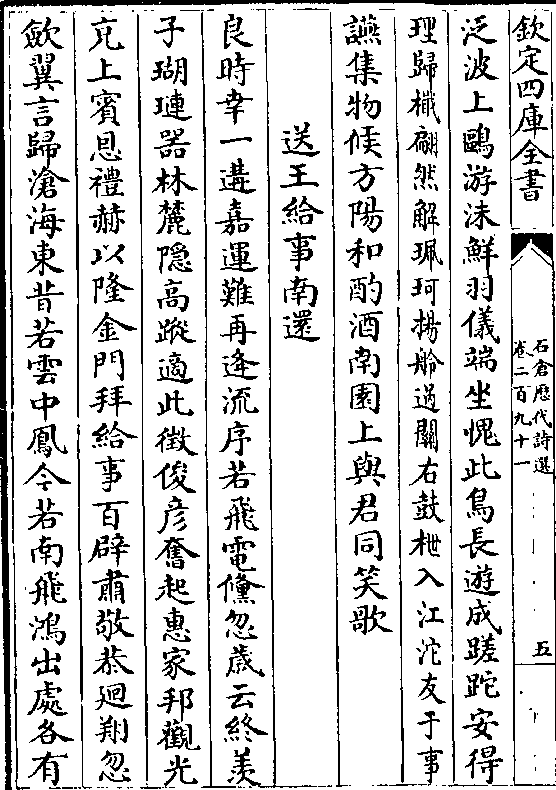 欽定四庫全書
石倉歷代詩選
卷二百九十一
五
泛波上鷗游沫鮮羽儀端坐愧此鳥長遊成蹉跎安得
理歸檝翩然解珮珂揚舲過關右鼓枻入江沱友于事
讌集物候方陽和酌酒南園上與君同笑歌
送王給事南還
良時幸一遘嘉運難再逢流序若飛電儵忽歲云終羨
子瑚璉器林麓隠高蹤適此徴俊彦奮起惠家邦觀光
充上賓恩禮赫以隆金門拜給事百辟肅敬恭廻翔忽
歛翼言歸滄海東昔若雲中鳳今若南飛鴻出處各有